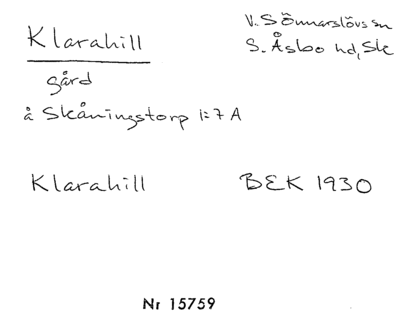 Klarahill
V. Sönnarslövs sn
S. Åsbo hd, Sk
gård
å Skåningstorp 1:7 A
Klarahill BEK 1930
Nr 15759